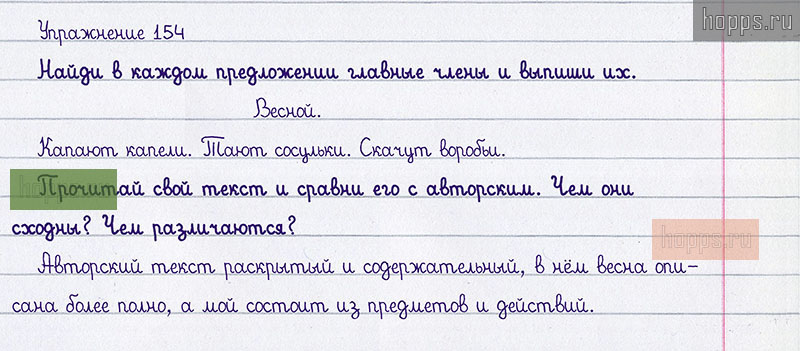 hopps.ru
Упражнение 154
Найди в каждом предложении главные члены и выпиши их.
Весной.
Капают капели. Тают сосульки. Скачут воробьи.
Прочитай свой текст и сравни его с авторским. Чем они
сходны? Чем различаются?
hopps.ru
Авторский текст раскрытый и содержательный, в нём весна опи-
сана более полно, а мой состоит из предметов и действий.